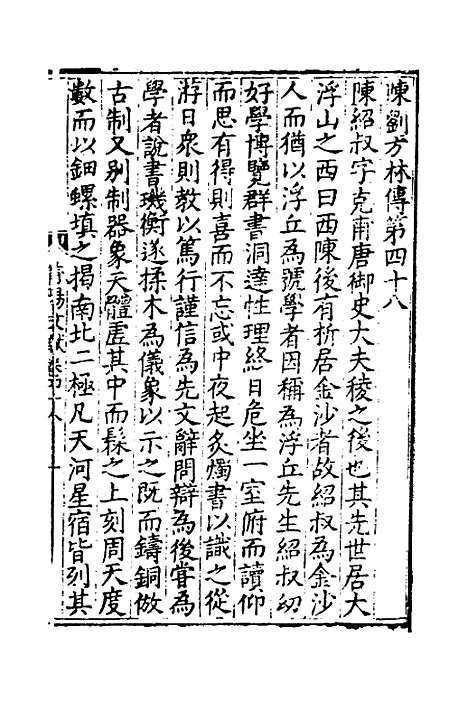 陳劉方林傳第四十八
陳紹叔字克甫唐御史大夫稜之後也其先世居大
浮山之西曰西陳後有析居金沙者故紹叔為金沙
人而猶以浮丘為號學者因稱為浮丘先生紹叔幼
好學博覽群書洞達性理終日危坐一室俯而讀仰
而思有得則喜而不忘或中夜起炙燭書以識之從
游日衆則教以篤行謹信為先文辭問辯為後甞為
學者說書璣衡遂揉木為儀象以示之既而鑄銅倣
古制又别制器象天體虛其中而髹之上刻周天度
數而以鈿螺填之揭南北二極凡天河星宿皆列其
莆陽文獻卷